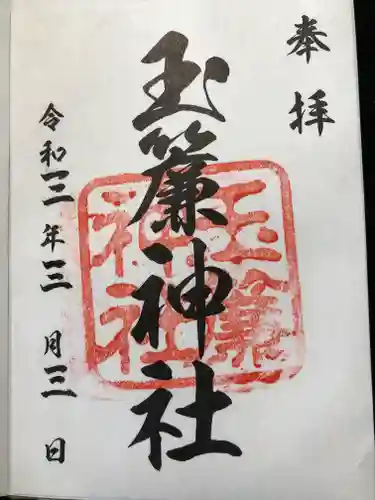 奉拝
玉簾神社
令和三年三月三日
玉簾
神社